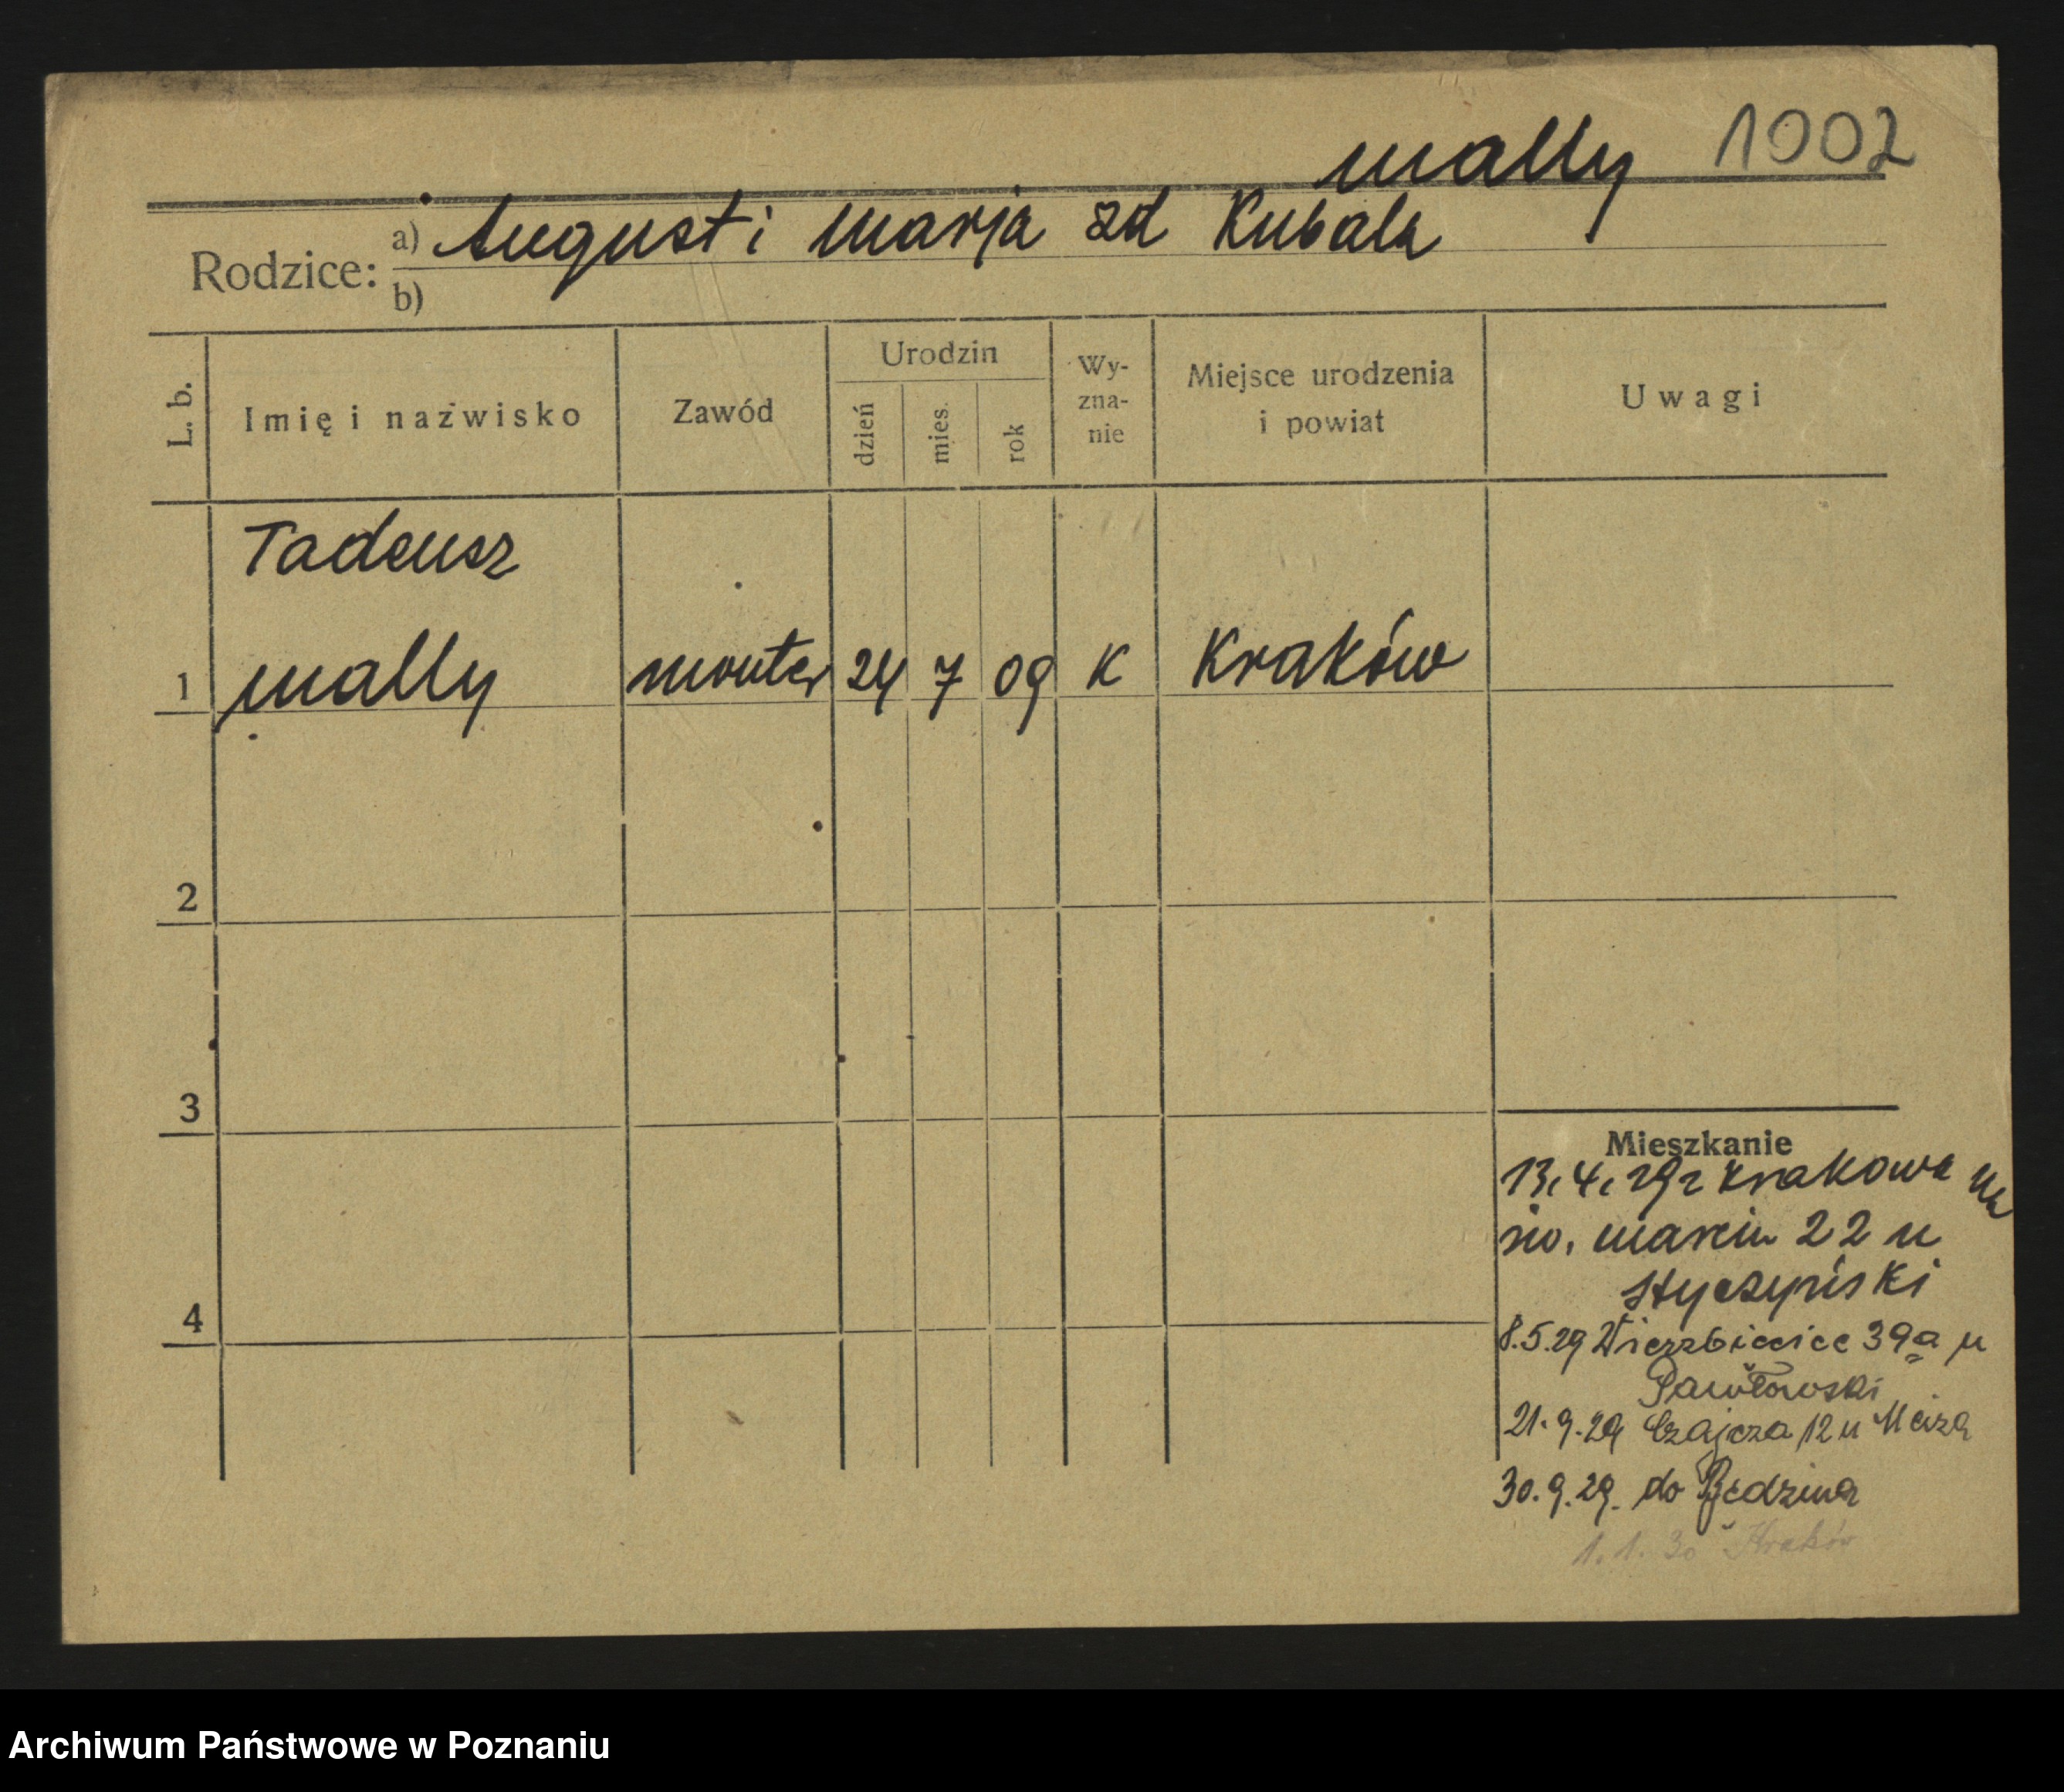 Mally 1002
Rodzice: a) August i Marja zd Kubala
b)
L. b. Imię i nazwisko Zawód Urodzin dzień mies. rok Wy-zna-nie Miejsce urodzenia i powiat Uwagi
Tadeusz
1 Mally monter 24 7 09 K Kraków
2
3
Mieszkanie
13.4.29 z Krakowa na
św. Marcin 22 u
Styczyński
4
8.5.29 Wierzbięcice 39a u
Pawłowski
21.9.29 Czajcza 12 u
30.9.29. do Będzina
1.1.30 Kraków
Archiwum Państwowe w Poznaniu